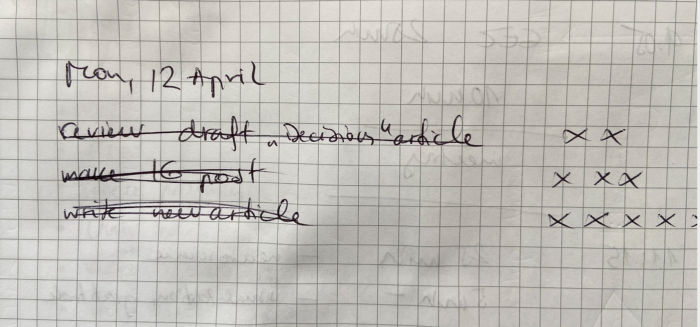 Mon, 12 April
review draft „Decisions“ article x x
make IG post x x x
write new article x x x x